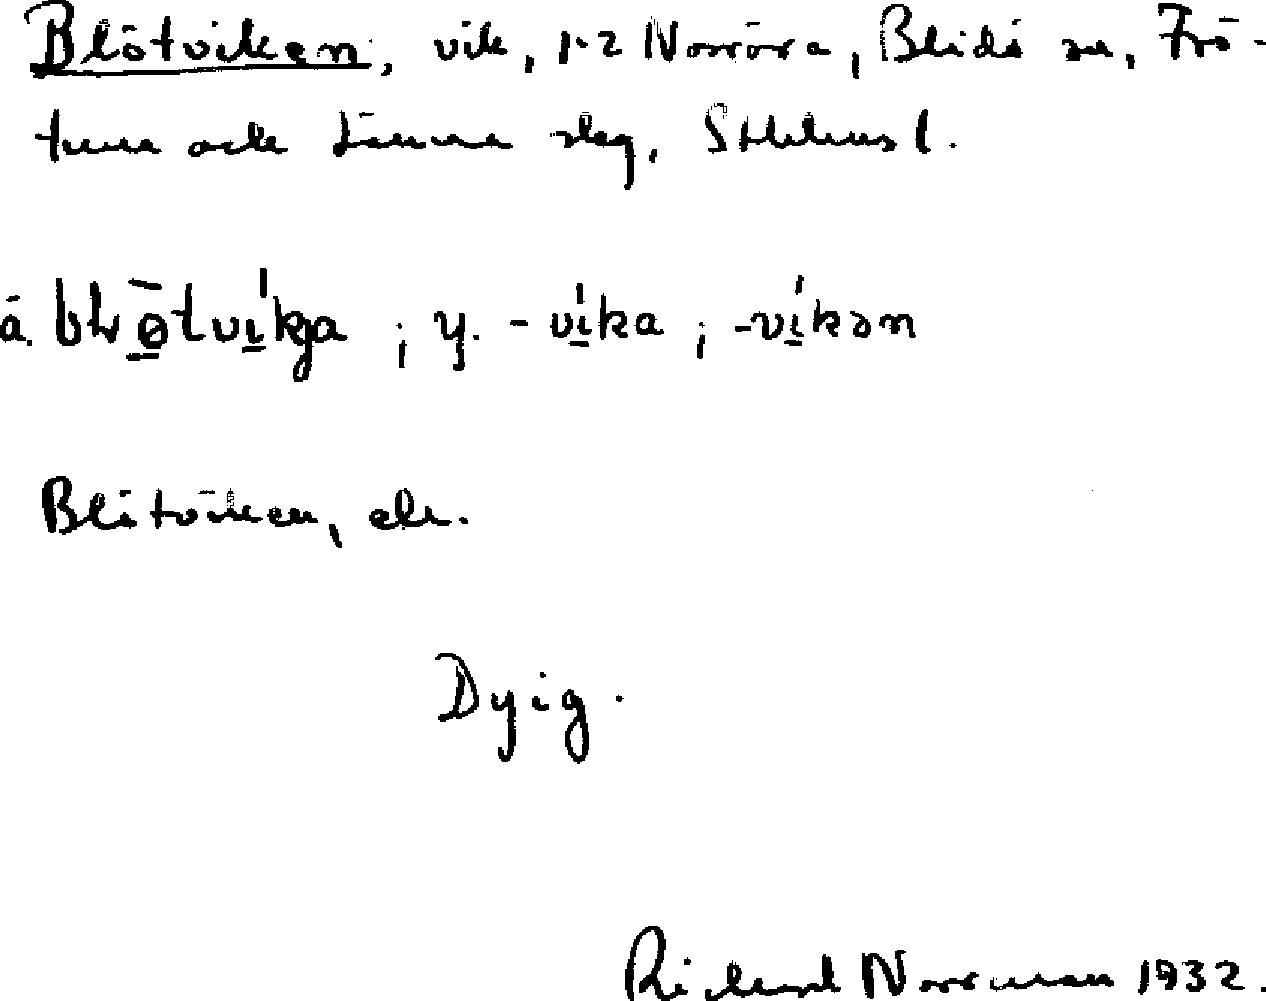 Blötviken, vik, 1-2 Norröra, Blidö sn, Frö-
tuna ock Länna slag, Sthlms l.
å. bɫø̄tvíkja ; y. -víka ; -víkən
Blötviken, ek.
Dyig.
Richard Norrman 1932.